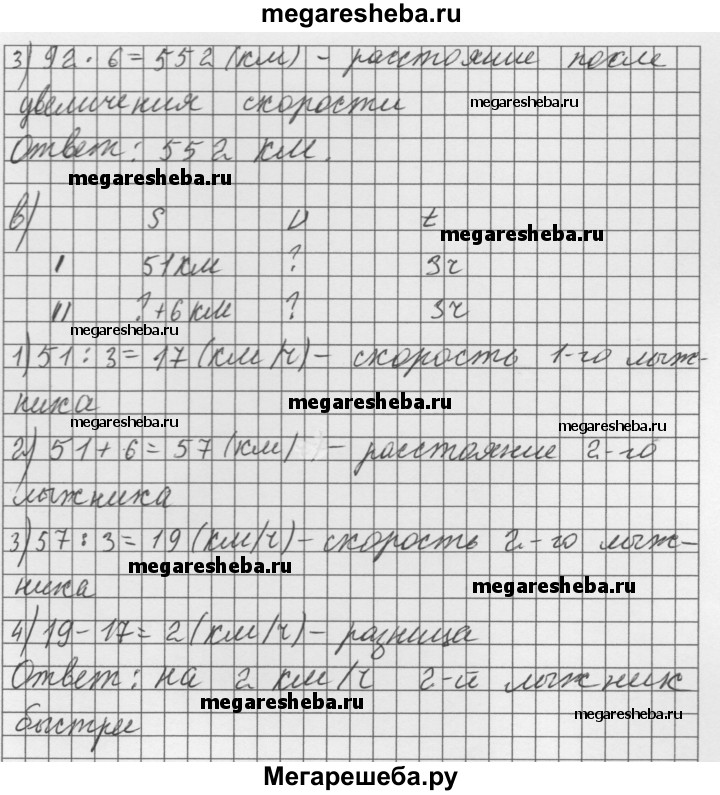 megaresheba.ru
3) 92 · 6 = 552 (км) - расстояние после
увеличения скорости
megaresheba.ru
Ответ: 552 км.
megaresheba.ru
в) S V t
megaresheba.ru
I 51 км ? 3ч
II ? +6 км ? 3ч
megaresheba.ru
1) 51 : 3 = 17 (км/ч) - скорость 1-го лыж-
ника
megaresheba.ru
megaresheba.ru
megaresheba.ru
2) 51 + 6 = 57 (км) - расстояние 2-го
лыжника
3) 57 : 3 = 19 (км/ч) - скорость 2-го лыж-
megaresheba.ru
ника
megaresheba.ru
4) 19 - 17 = 2 (км/ч) - разница
Ответ: на 2 км/ч 2-й лыжник
megaresheba.ru
быстрее
megaresheba.ru
Мегарешеба.ру